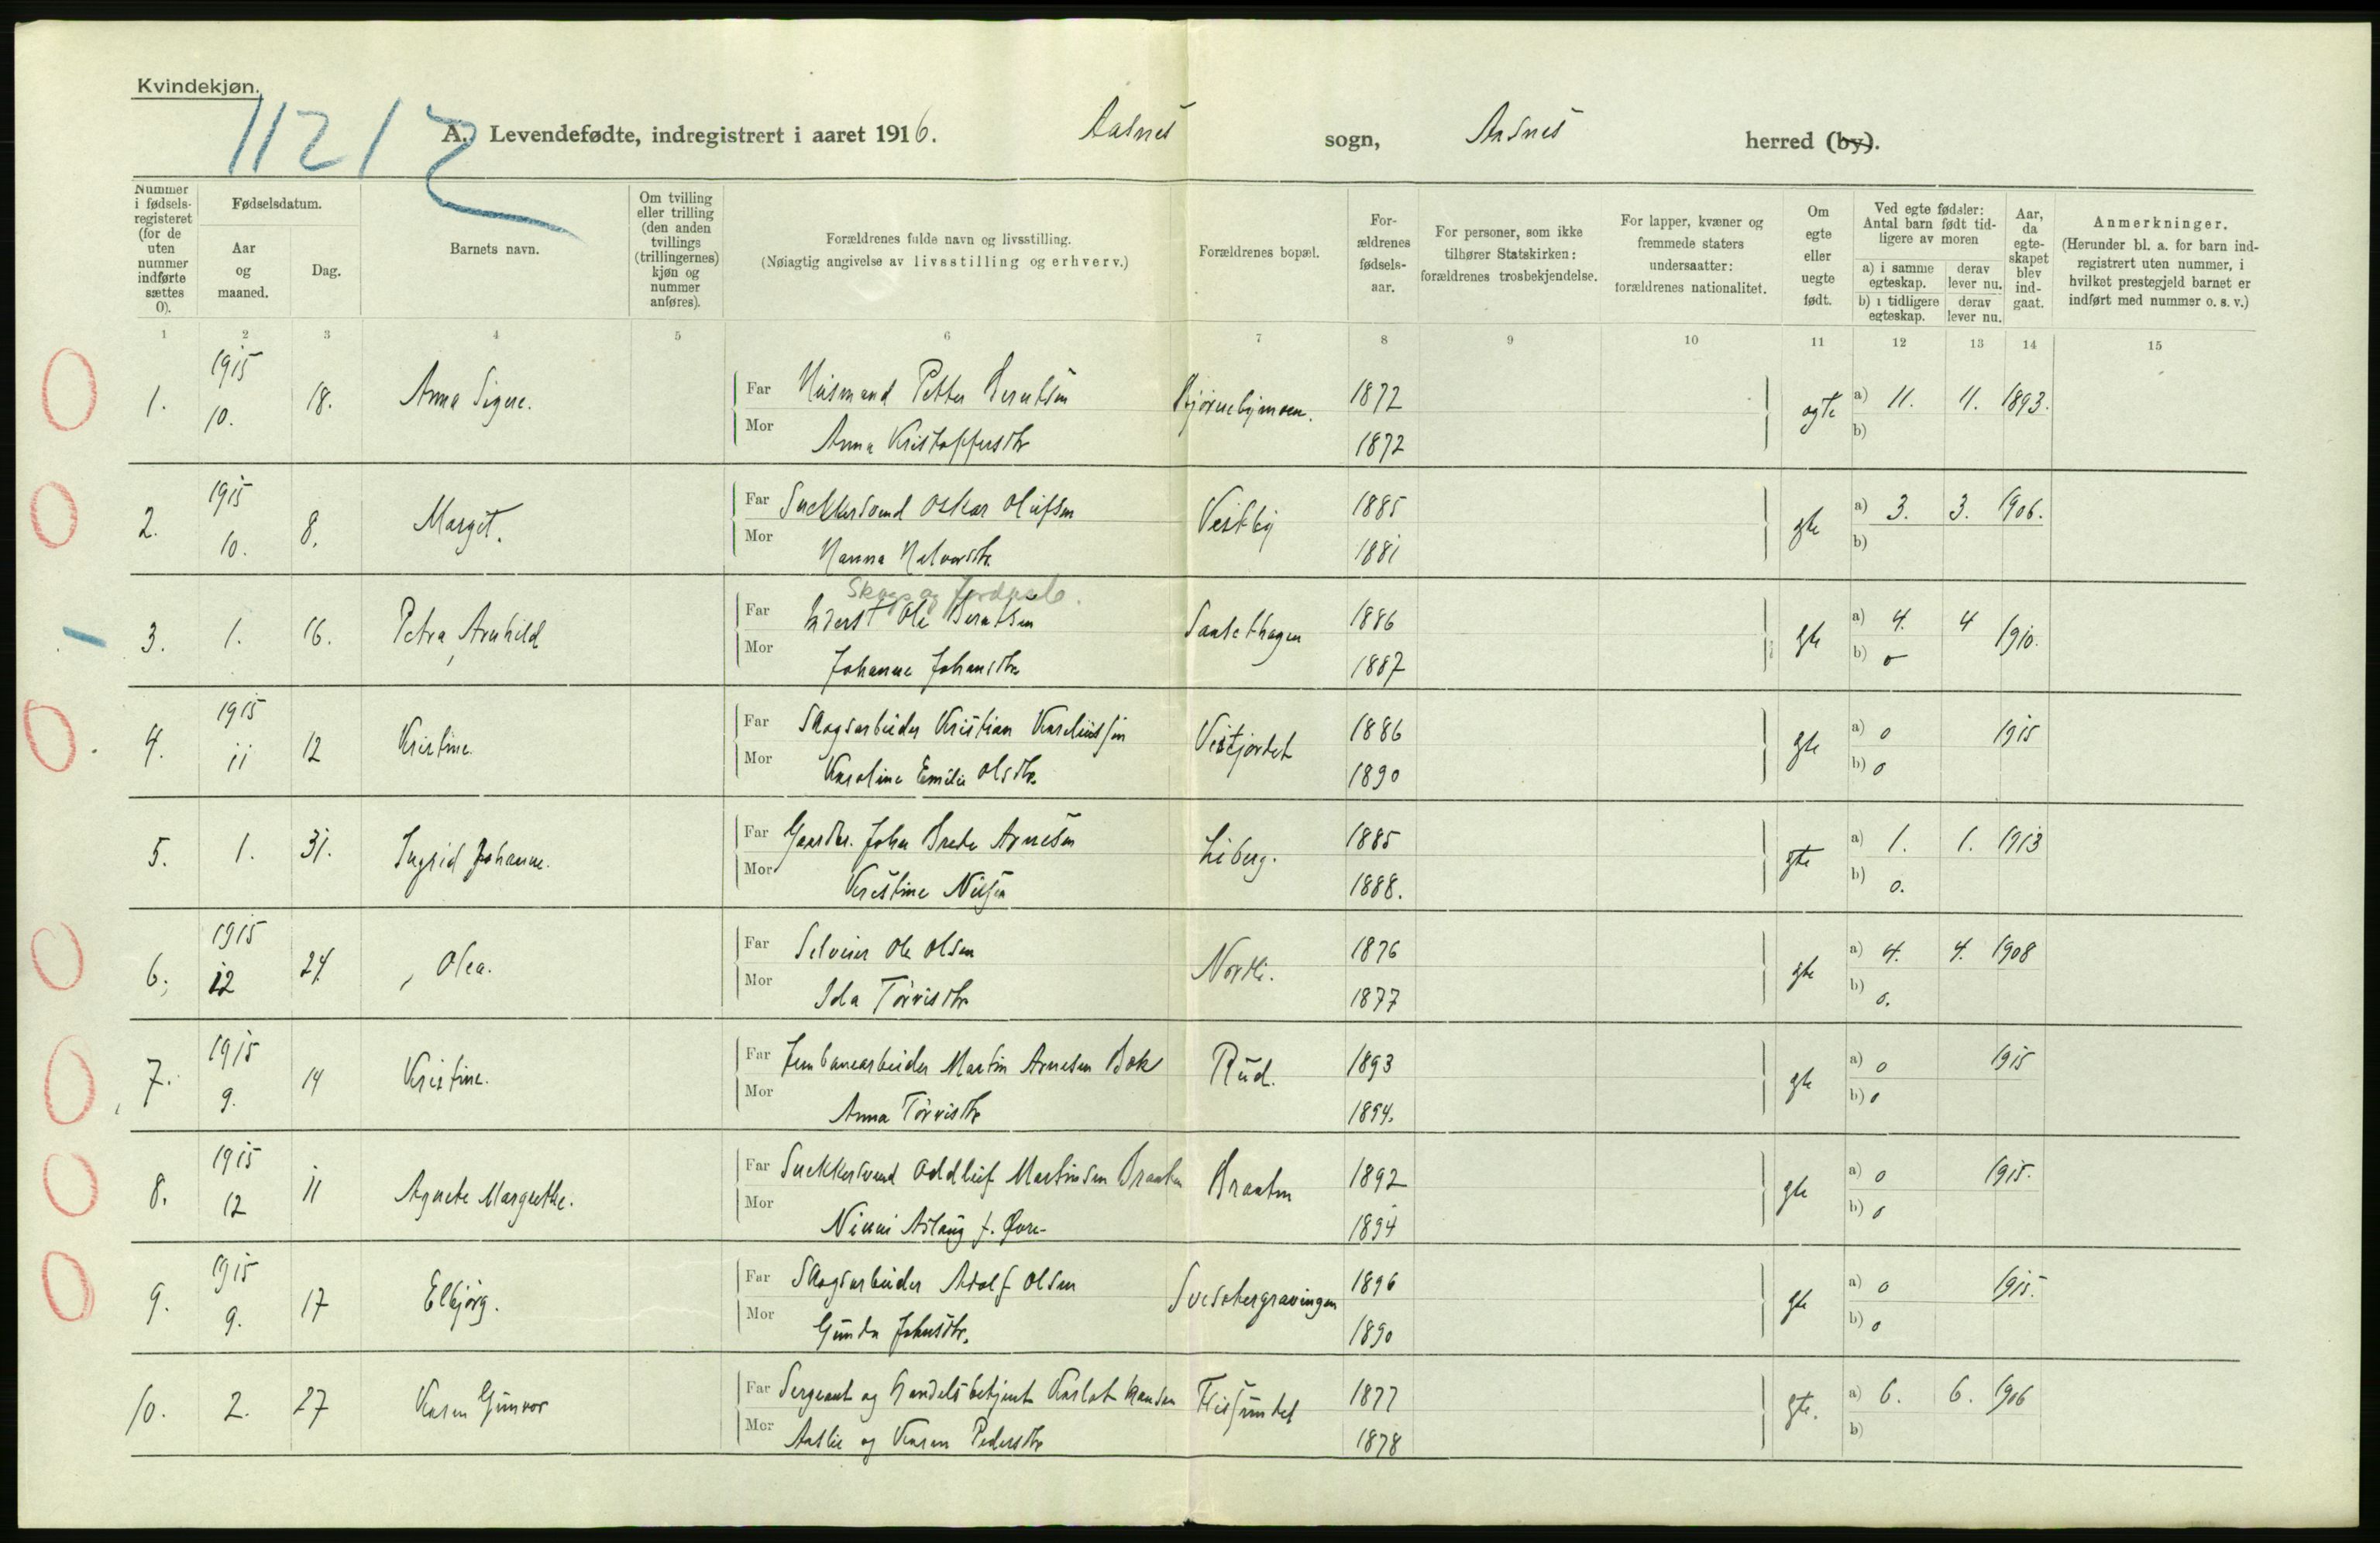 Kvindekjøn.
11212
A. Levendefødte, indregistrert i aaret 1916. Aasnes sogn, Aasnes herred (by).
Nummer i fødselsregisteret (for de uten nummer indførte sættes 0).
Fødselsdatum.
Aar og maaned.
Dag.
Barnets navn.
Om tvilling eller trilling (den anden tvillings (trillingernes) kjøn og nummer anføres).
Forældrenes fulde navn og livsstilling.
(Nøiagtig angivelse av livsstilling og erhverv.)
Forældrenes bopæl.
Forældrenes fødselsaar.
For personer, som ikke tilhører Statskirken: forældrenes trosbekjendelse.
For lapper, kvæner og fremmede staters undersaatter: forældrenes nationalitet.
Om egte eller uegte født.
Ved egte fødsler: Antal barn født tidligere av moren
a) i samme egteskap. derav lever nu.
b) i tidligere egteskap. derav lever nu.
Aar, da egteskapet blev indgaat.
Anmerkninger.
(Herunder bl. a. for barn indregistrert uten nummer, i hvilket prestegjeld barnet er indført med nummer o. s. v.)
1 2 3 4 5 6 7 8 9 10 11 12 13 14 15
1. 1915 10. 18. Anna Signe. Far Husmand Petter Berntsen Bjørnebymoen. 1872 egte a) 11. 11. 1893.
Mor Anna Kristoffersdtr 1872 b)
2. 1915 10. 8. Margit. Far Snekkersvend Oskar Olufsen Vestby 1885 gte a) 3. 3. 1906.
Mor Hanna Halvorsdtr. 1881 b)
Skogs og Jordarb.
3. 1. 16. Petra Arnhild Far Inderst Ole Berntsen 1886 gte a) 4. 4 1910.
Mor Johanne Johansdtr. 1887 b) 0
4. 1915 11 12 Kristine. Far Skogsarbeider Kristian Kareliussen Vestjordet 1886 gte a) 0 1915
Mor Karoline Emilie Olsdtr. 1890 b) 0
5. 1. 31. Ingrid Johanne. Far Gaardbr. Johan Brede Arnesen Liberg. 1885 gte a) 1. 1. 1913
Mor Kristine Nilsen 1888. b) 0.
6. 1915 12 24. Olea. Far Selveier Ole Olsen Nordli. 1876 gte a) 4. 4. 1908
Mor Ida Törrisdtr. 1877 b) 0.
7. 1915 9. 14 Kristine. Far Jernbanearbeider Martin Arnesen Bok Rud. 1893 gte a) 0 1915
Mor Anna Törrisdtr 1894. b) 0
8. 1915 12 11 Agnete Margrethe. Far Snekkersvend Oddleif Martinsen Braaten Braaten 1892 gte a) 0 1915.
Mor Aslaug f. 1894 b) 0
9. 1915 9. 17 Elbjørg. Far Skogsarbeider Adolf Olsen 1896 gte a) 0 1915.
Mor Gunda Johnsdtr. 1890 b) 0
10. 2. 27 Karen Gunvor Far Sergeant og Handelsbetjent Hansen Flissundet 1877 gte. a) 6. 6. 1906
Mor Aaslie og Karen Pedersdtr 1878 b)